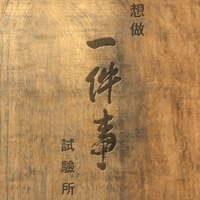 想做
一件事
試驗所